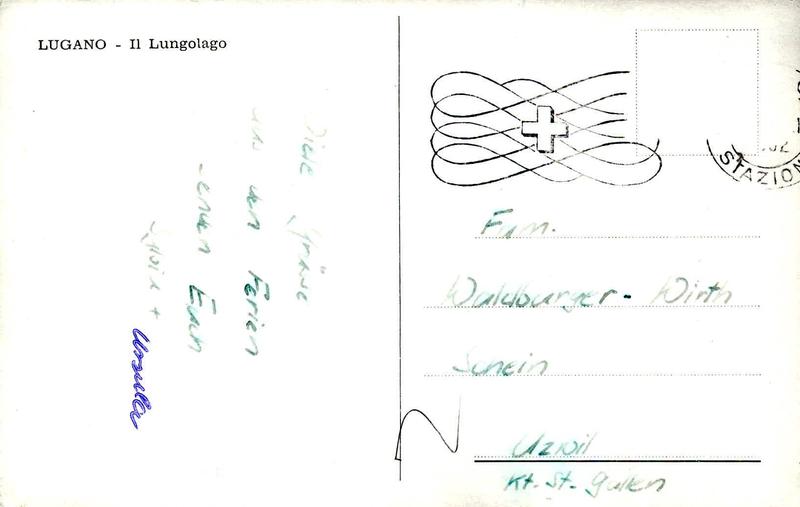 LUGANO - Il Lungolago
Viele Grüsse
aus den Ferien
senden Euch
Silvia +
Ursulla
STAZION
Fam.
Waldburger - Wirth
Schein
Uzwil
Kt. St. Gallen